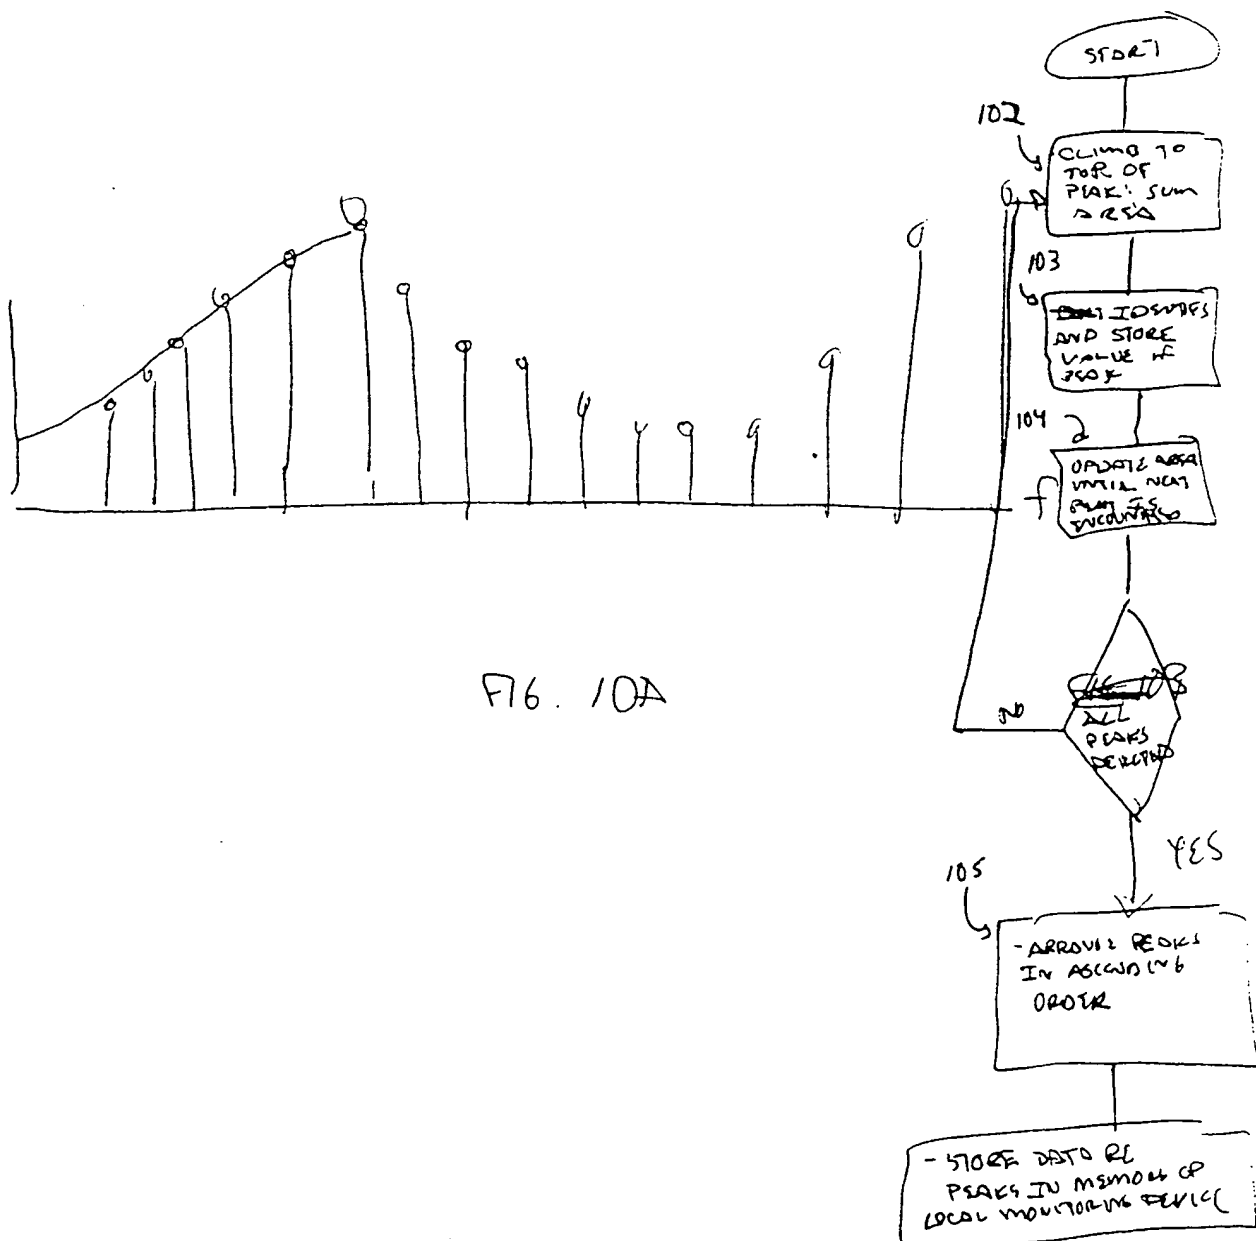 START
102
CLIMB TO
TOP OF
PEAK: SUM
AREA
103
IDENTIFS
AND STORE
VALUE OF
PEAK
104
UPDATE AREA
UNTIL NEXT
PEAK IS
ENCOUNTERED
f
ALL
PEAKS
DETECTED
NO
YES
FIG. 10A
105
- ARRANGE PEAKS
IN ASCENDING
ORDER
- STORE DATA RE
PEAKS IN MEMORY OF
LOCAL MONITORING DEVICE